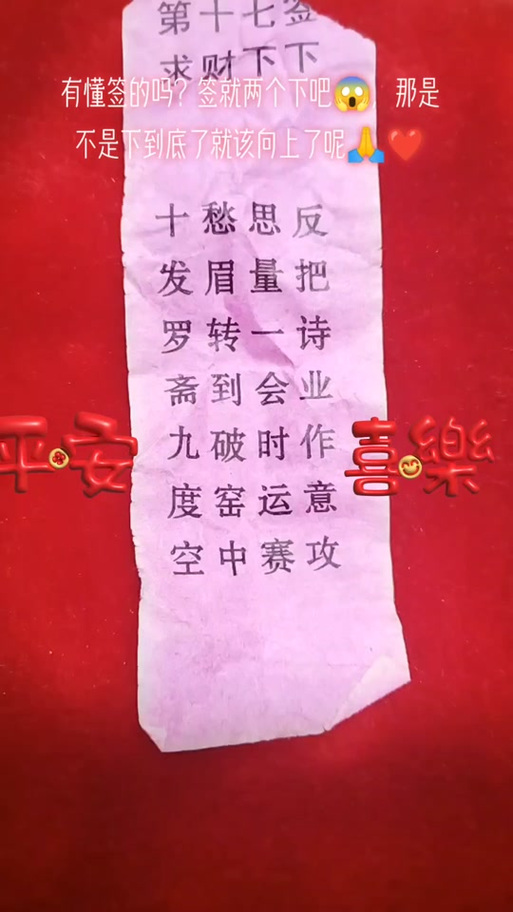 第十七签
求财下下
有懂签的吗？签就两个下吧😱 那是
不是下到底了就该向上了呢🙏❤️
反把诗业作意攻
思量一会时运赛
愁眉转到破窑中
十发罗斋九度空
平安 喜樂